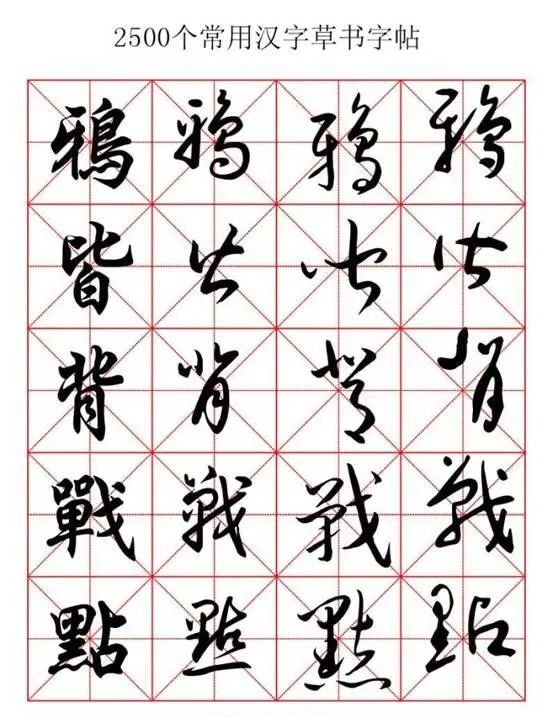 2500个常用汉字草书字帖
鴉 鴉 鴉 鴉
皆 皆 皆 皆
背 背 背 背
戰 戰 戰 戰
點 點 點 點